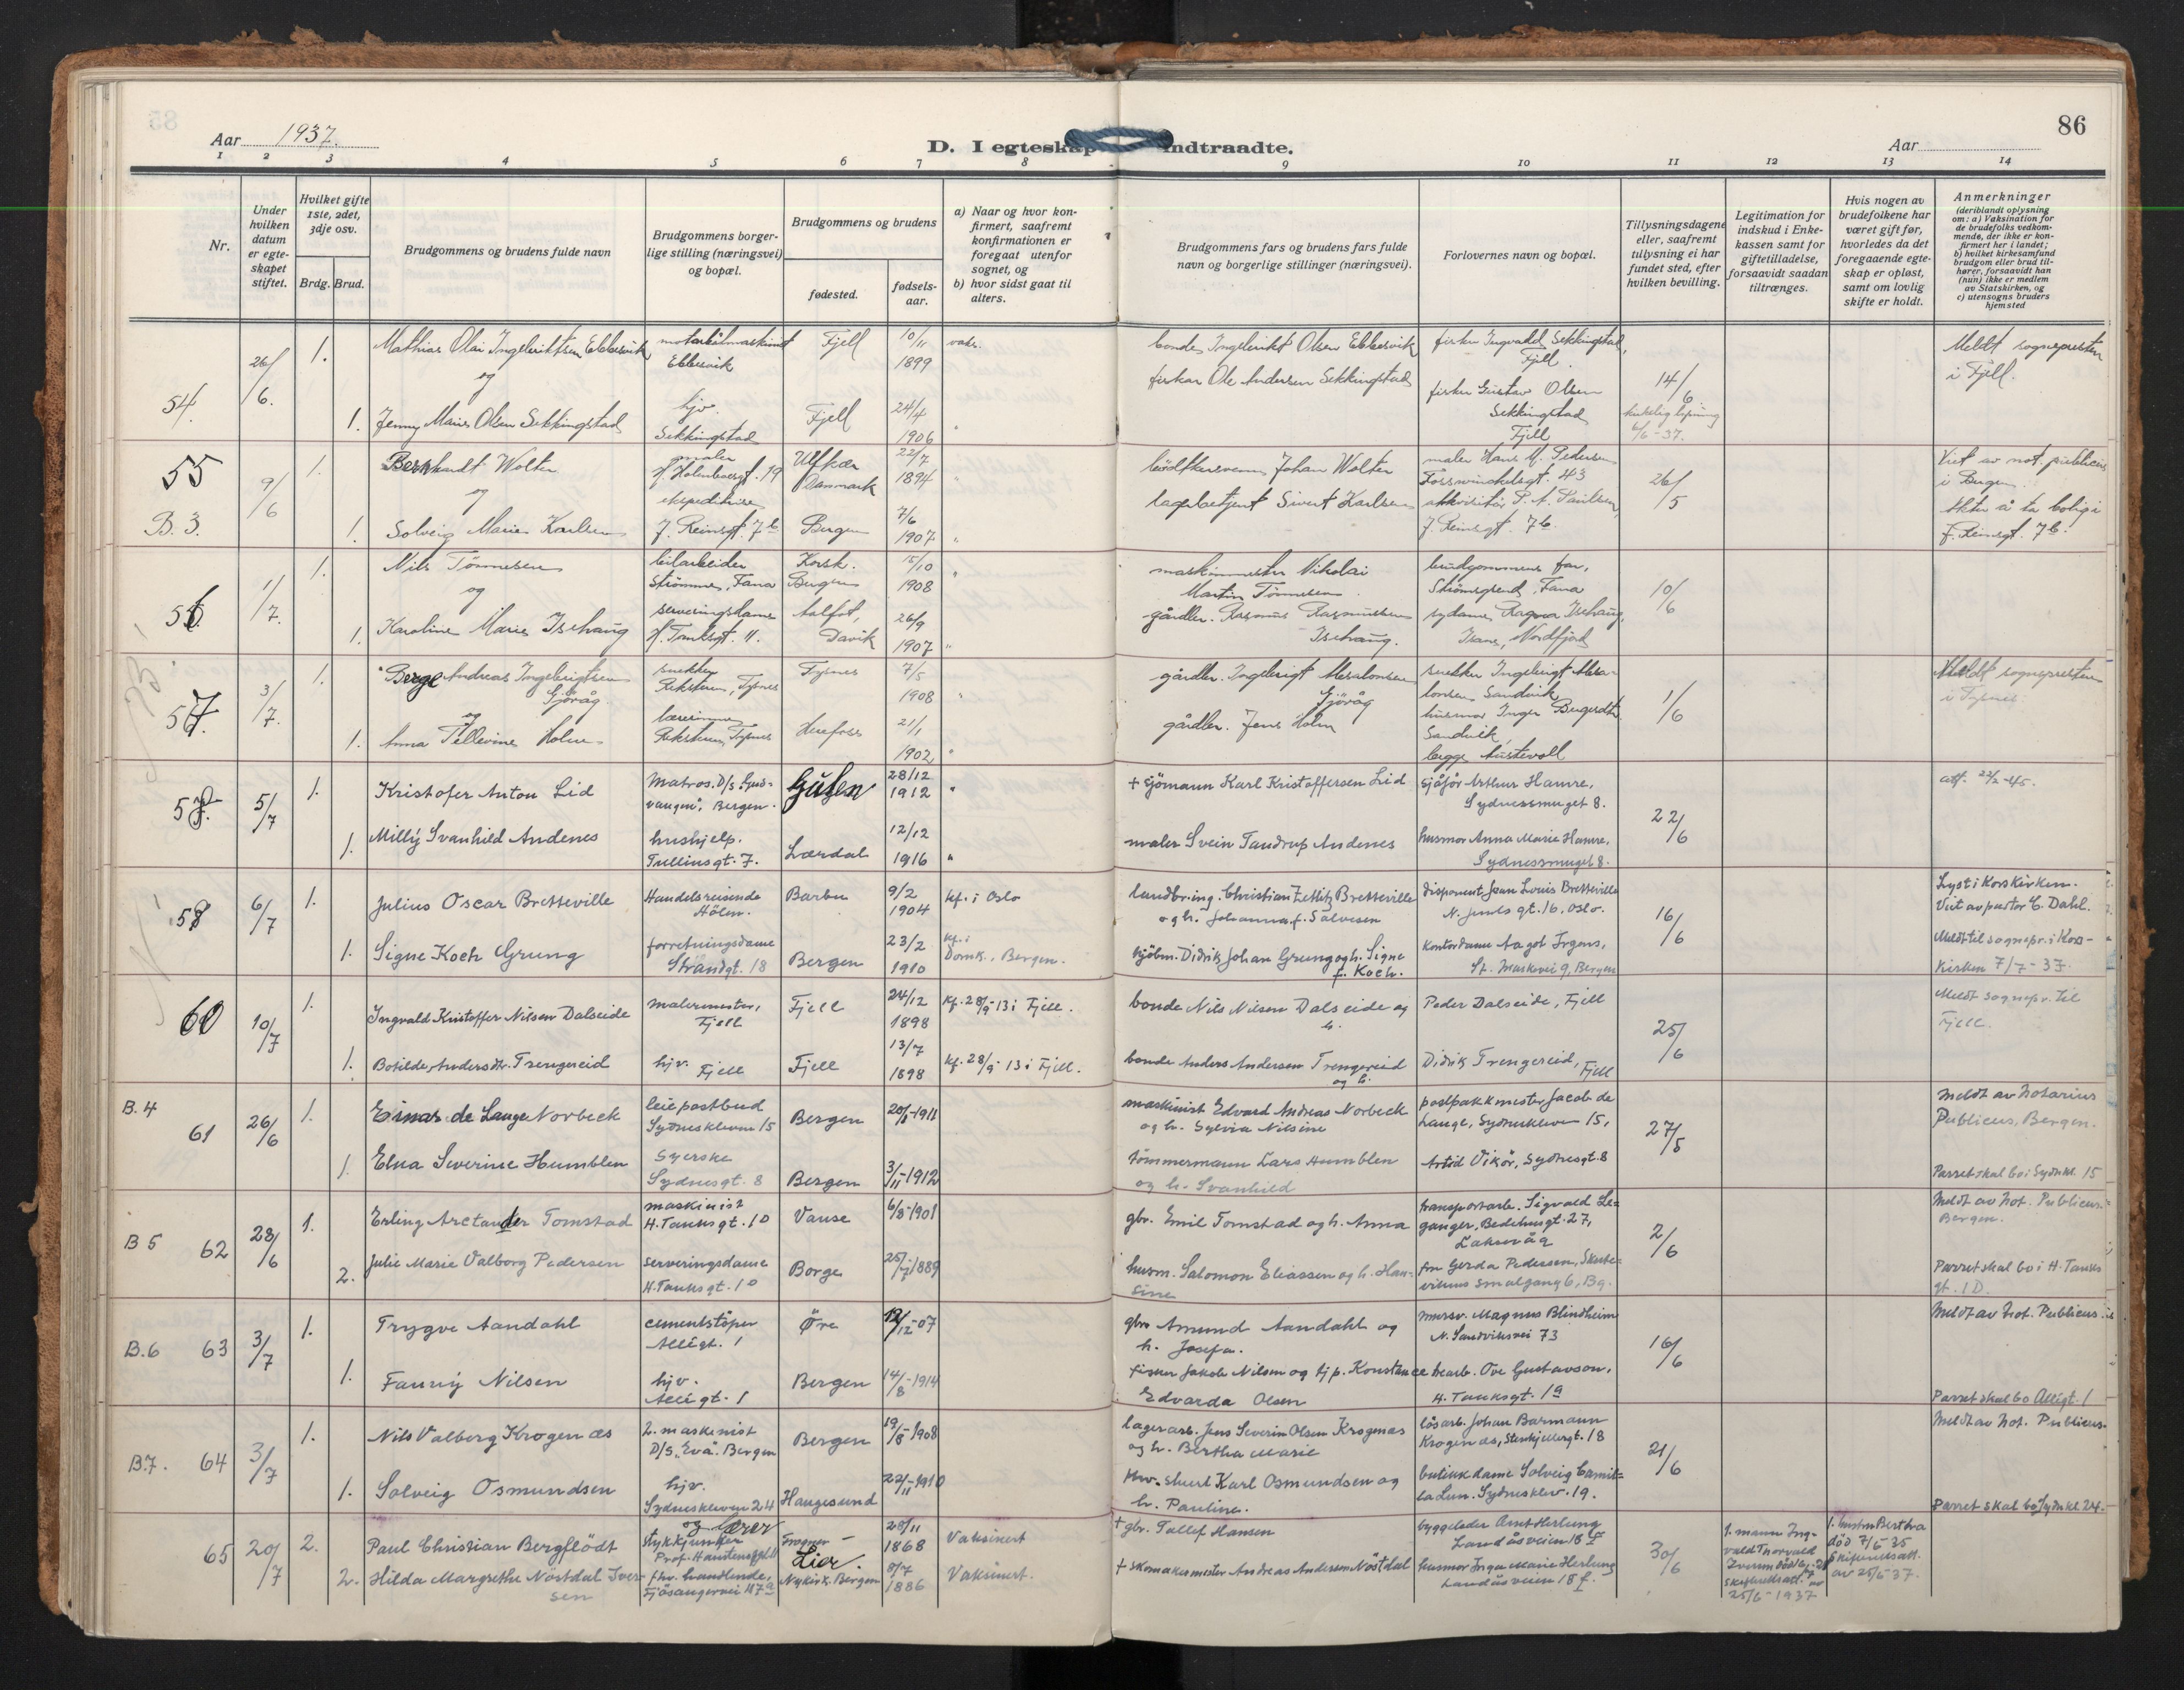 86
Aar 1937.
D. I egteskap indtraadte.
Aar
1 2 3 4 5 6 7 8 9 10 11 12 13 14
Nr.
Under hvilken datum er egteskapet stiftet.
Hvilket gifte 1ste, 2det, 3dje osv.
Brdg. Brud.
Brudgommens og brudens fulde navn
Brudgommens borgerlige stilling (næringsvei) og bopæl.
Brudgommens og brudens
fødested.
fødselsaar.
a) Naar og hvor konfirmert, saafremt konfirmationen er foregaat utenfor sognet, og
b) hvor sidst gaat til alters.
Brudgommens fars og brudens fars fulde navn og borgerlige stillinger (næringsvei).
Forlovernes navn og bopæl.
Tillysningsdagene eller, saafremt tillysning ei har fundet sted, efter hvilken bevilling.
Legitimation for indskud i Enkekassen samt for giftetilladelse, forsaavidt saadan tiltrænges.
Hvis nogen av brudefolkene har været gift før, hvorledes da det foregaaende egteskap er opløst, samt om lovlig skifte er holdt.
Anmerkninger
(deriblandt oplysning om: a) Vaksination for de brudefolks vedkommende, der ikke er konfirmert her i landet; b) hvilket kirkesamfund brudgom eller brud tilhører, forsaavidt han (hun) ikke er medlem av Statskirken, og c) utensogns bruders hjemsted
54. 26/6. 1. Mathias Olai Ingebriktsen Ebbesvik Ebbesvik Fjell 10/11 1899 vaks. bonde Ingebrikt Olsen Ebbesvik fisker Ingvald Sekkingstad, Fjell 14/6 Meldt sognepresten i Fjell.
og
1. Jenny Marie Olsen Sekkingstad hjv. Sekkingstad Fjell 24/4 1906 " fisker Ole Andersen Sekkingstad fisker Gustav Olsen Sekkingstad Fjell
55 B.3. 9/6 1. Bernhardt Wolter maler H. Holenbergt. 19 Danmark 22/7 1894 " Johan Wolter maler Hans M. Pedersen Fosswinckelsgt. 43 26/5 Viet av not. publicus i Bergen.
og
1. Solveig Marie Karlsen J. Reinsgt. 7b Bergen 7/6 1907 " lagerbetjent Sivert Karlsen J. Reinsgt. 7b. akter å ta bolig i J. Reinsgt. 7b.
56. 1/7. 1. Nils Tönnesen bilarbeider Strömme, Fana Korsk. Bergen 15/10 1908 " maskinmester Nikolai Martin Tönnesen brudgommens far, Strömegrend, Fana 10/6
og
1. Karoline Marie Isehaug serveringsdame H. Tanksgt. 11. Aalfot, Davik 26/9 1907 " gårdbr. Rasmus Rasmussen Isehaug. sydame Ragna Isehaug, Isane, Nordfjord
57. 3/7. 1. Berge Andreas Ingebrigtsen Gjöråg snekker Reksteren, Tysnes Tysnes 7/5 1908 " gårdbr. Ingebrigt Gjöråg snekker Ingebrigt Sandvik 1/6 Meldt sognepresten i Tysnes
og
1. Anna Tellevine Holm lærerinne Reksteren, Tysnes Herefoss 21/1 1902 " gårdbr. Jens Holm husmor Inger Sandvik, begge Austevoll
5/7 1. Kristofer Anton Lid Matros. D/s "Gudvangen", Bergen. Gulen 28/12 1912 " + sjömann Karl Kristoffersen Lid sjåför Arthur Hamre, Sydnessmuget 8. 22/6 att. 22/2-45.
1. Milly Svanhild Andenes hushjelp. Tullinsgt. 7. Lærdal 12/12 1916 " maler Svein Tandrup Andenes husmor Anna Marie Hamre, Sydnessmuget 8.
6/7 1. Julius Oscar Bretteville Handelsreisende Hölen. Barbu 9/2 1904 kf. i Oslo landbr.ing. Christian Zetlitz Bretteville og h. Johanna f. Salvesen disponent Jean Louis Bretteville N. Juels gt. 16, Oslo. 16/6 Lyst i Korskirken. Viet av pastor C. Dahl.
1. Signe Koch Grung forretningsdame Strandgt. 18 Bergen 23/2 1910 kf. i Domk., Bergen. kjöbm. Didrik Johan Grung og h. Signe f. Koch. kontordame Aagot Irgens, St. Markevei 9, Bergen Meldt til sognepr. i Korskirken 7/7-37.
60 10/7 1. Ingvald Kristoffer Nilsen Dalseide malermester, Fjell Fjell 24/12 1898 kf. 28/9-13 i Fjell. bonde Nils Nilsen Dalseide og h. Peder Dalseide, Fjell 25/6 Meldt sognepr. til Fjell.
1. Botilde Andersdtr. Trengereid hjv. Fjell Fjell 13/7 1898 kf. 28/9-13 i Fjell. bonde Anders Andersen Trengereid og h. Didrik Trengereid, Fjell
B.4 61 26/6 1. Einar de Lange Norbeck leiepostbud Sydneskleven 15 Bergen 20/8-1911 maskinist Edvard Andreas Norbeck og h. Sylvia Nilsine postpakkmester Jacob de Lange, Sydneskleven 15, 27/5 Meldt av Notarius Publicus, Bergen.
1. Elna Severine Humblen Syerske Sydnesgt. 8 Bergen 3/11-1912 tömmermann Lars Humblen og h. Svanhild Vikör, Sydnesgt. 8 Parret skal bo i Sydnkl. 15
B 5 62 28/6 1. Erling Arctander Tomstad maskinist H. Tanksgt. 1D Vanse 6/8-1901 gbr. Emil Tomstad og h. Anna transportarb. Sigvald Leganger, Bedehusgt. 27, Laksevåg 2/6 Meldt av Not. Publicus. Bergen.
2. Julie Marie Valborg Pedersen serveringsdame H. Tanksgt. 1D Borge 25/7 1889 husm. Salomon Eliassen og h. Hansine fru Gerda Pedersen, Skutevikens Smalgang 6, Bg. Parret skal bo i H. Tanks gt. 1D.
B.6 63 3/7 1. Trygve Aandahl cementstöper Allégt. 1 Öre 12/12-07 gbr. Amund Aandahl og h. Josefa. mursv. Magnus Blindheim N. Sandviksvei 73 16/6 Meldt av Not. Publicus.
1. Fanny Nilsen hjv. Allégt. 1 Bergen 14/8-1914 fisker Jakob Nilsen og tjp. Konstance Edvarda Olsen Ove Gustavson, H. Tanksgt. 1a Parret skal bo Allégt. 1
B.7. 64 3/7 1. Nils Valberg Krogenæs 2. maskinist D/S "Eva". Bergen Bergen 19/8-1908 lagerarb. Jens Severin Olsen Krogenæs og h. Bertha Marie lösarb. Johan Barmann Krogenæs, Steinkjellergt. 18 21/6 Meldt av Not. Publicus.
1. Solveig Osmundsen hjv. Sydneskleven 24 Haugesund 22/11-1910 Karl Osmundsen og h. Pauline. butikkdame Solveig Camilla Lun. Sydnesklev. 19. Parret skal bo Sydnkl. 24.
65 20/7 2. Paul Christian Bergflödt stykkjunker og lærer Prof. Hansteensgt. Lier. 28/11 1868 Vaksinert + gbr. Tallef Hansen byggeleder Arnt Herlung Landåsveien 18 f 30/6 1. mann Ingvald Thorvald Iversen död skifteattest av 25/6-1937 1. hustru Bertha död 7/6 35 Skifteattest av 25/6-37.
2. Hilda Margrethe Nöstdal Iversen fhv. handlende, Fjösangervei 47a Nykirk. Bergen 8/7 1886 Vaksinert. + skomakermester Andreas Andersen Nöstdal husmor Inga Marie Herlung Landåsveien 18 f.